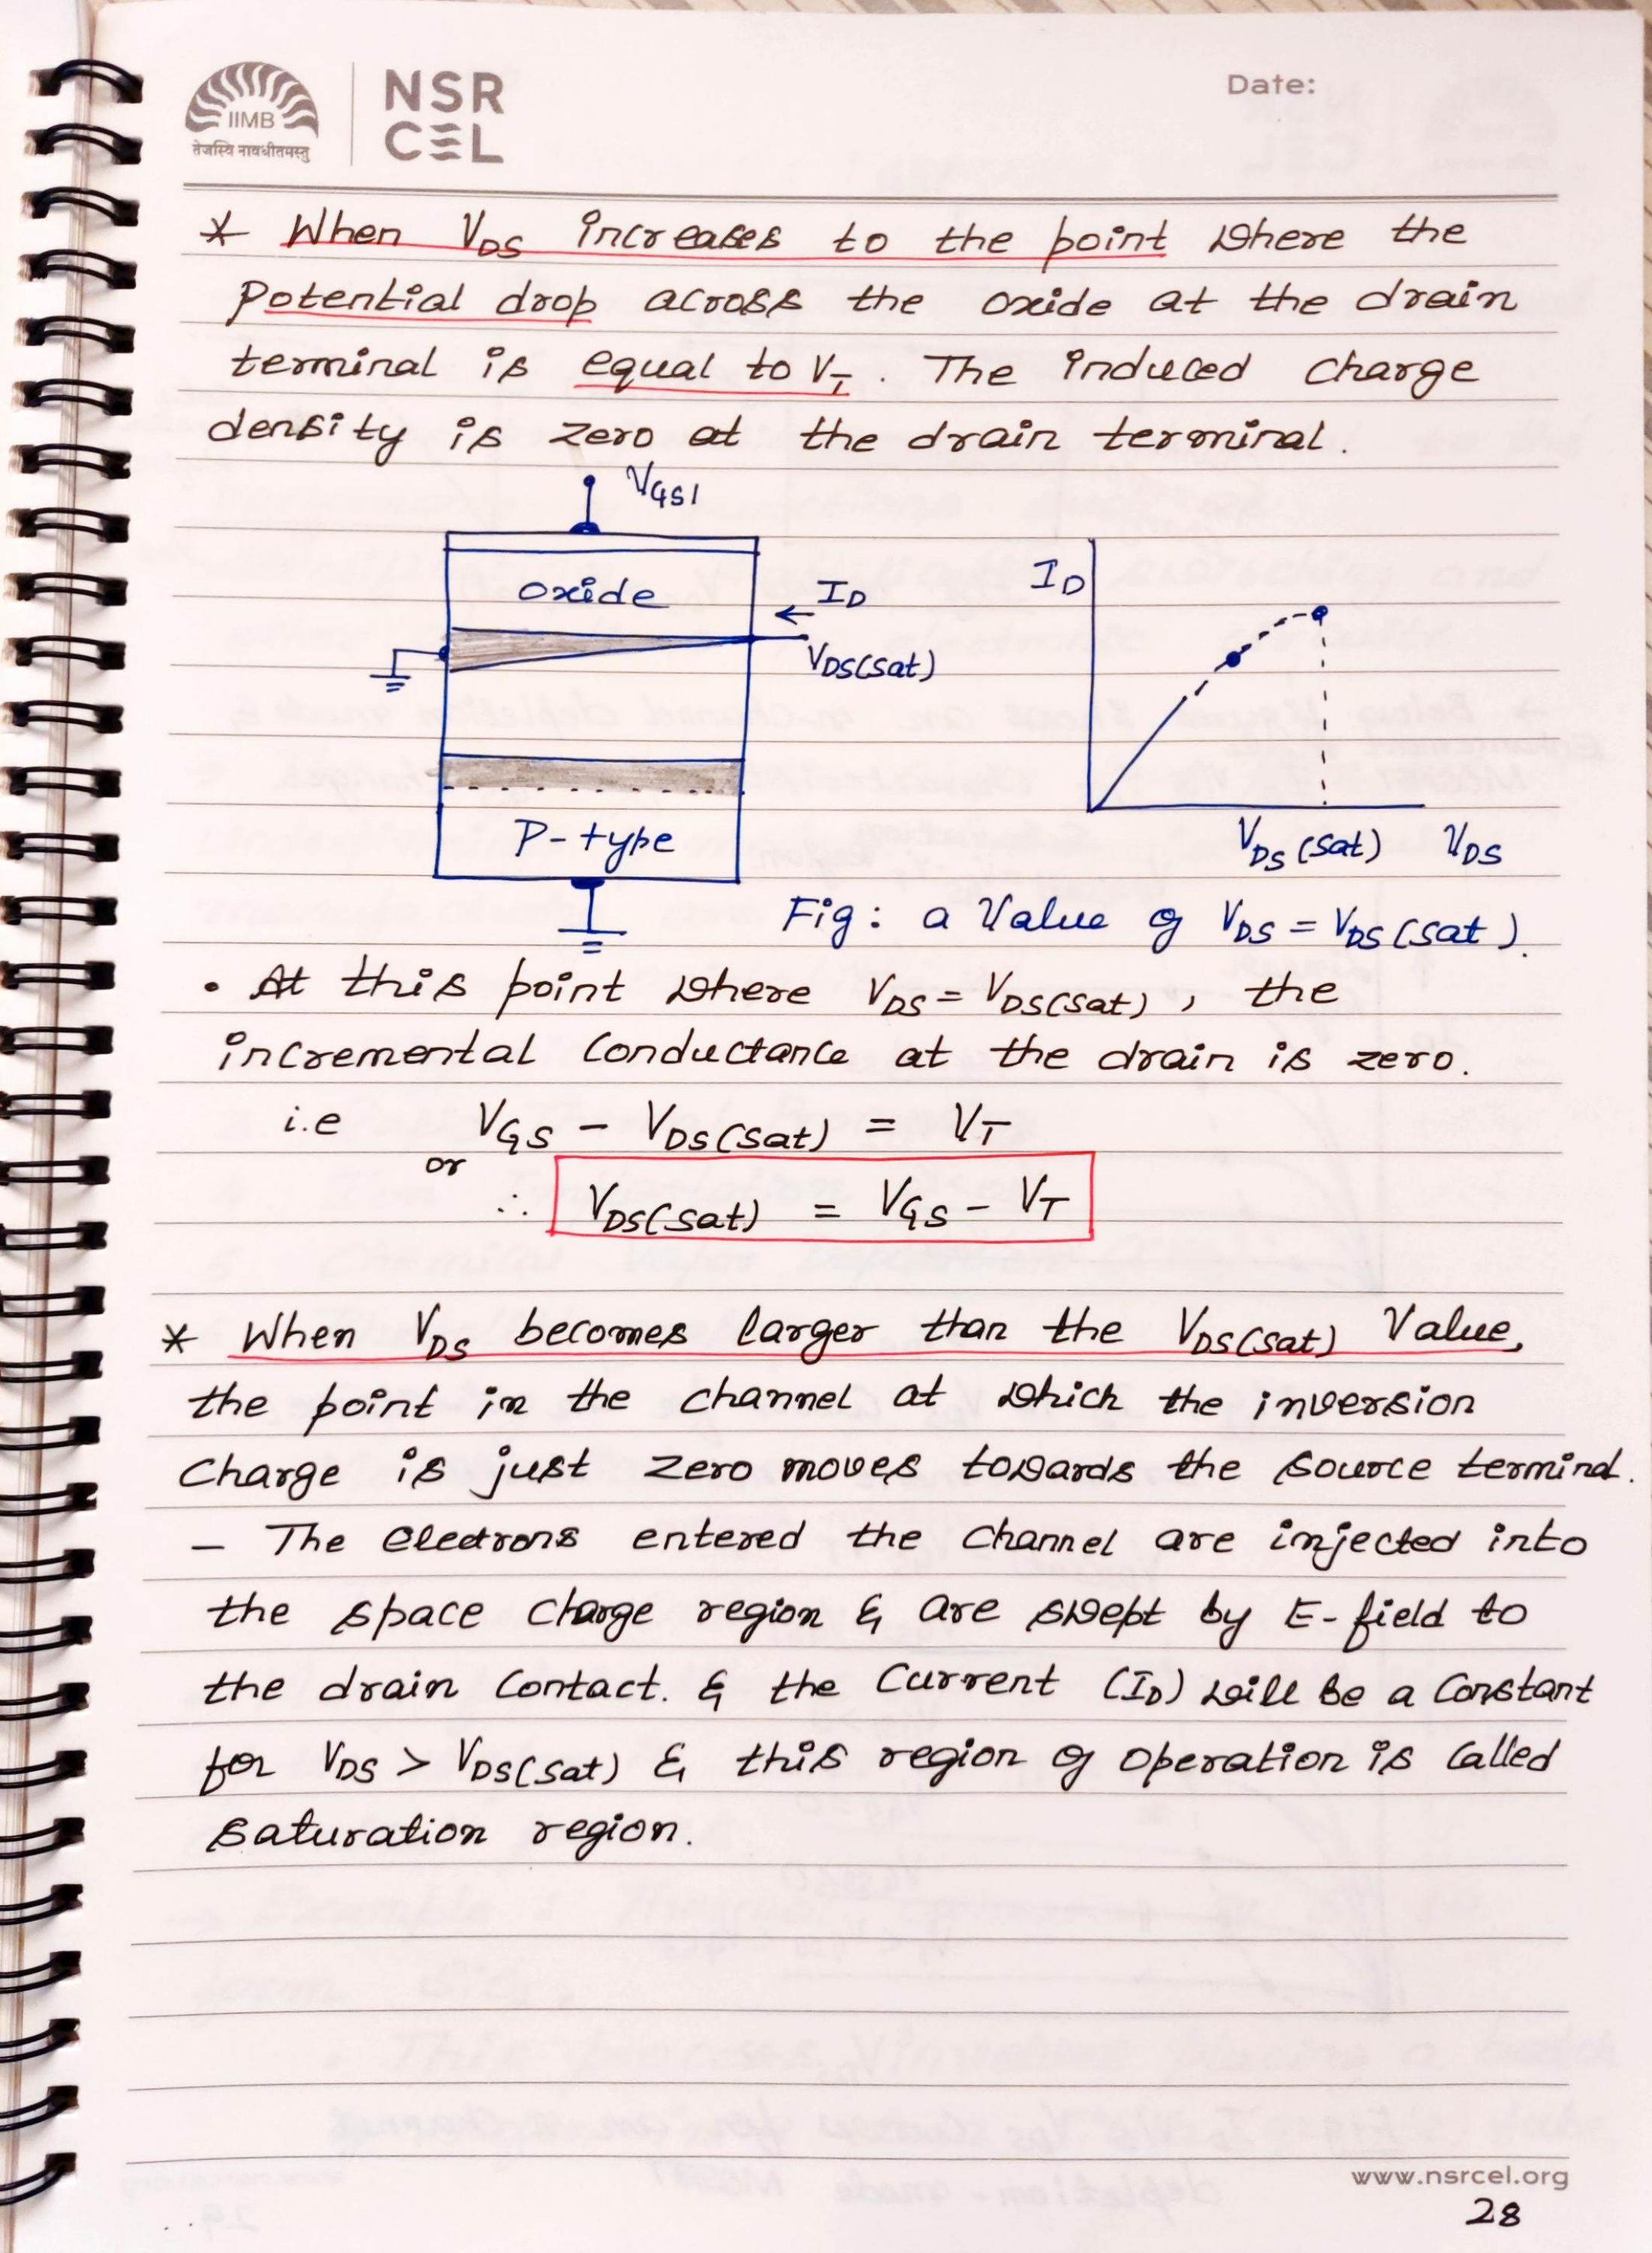 IIMB
तेजस्वि नावधीतमस्तु
NSR
CEL
Date:
* When VDS increases to the point where the
potential drop across the oxide at the drain
terminal is equal to VT. The induced charge
density is zero at the drain terminal.
VGS1
oxide
ID
VDS(sat)
P-type
ID
VDS(sat) VDS
Fig: a Value of VDS = VDS(sat).
• At this point where VDS = VDS(sat), the
incremental conductance at the drain is zero.
i.e VGS - VDS(sat) = VT
or
∴ VDS(sat) = VGS - VT
* When VDS becomes larger than the VDS(sat) Value,
the point in the channel at which the inversion
charge is just zero moves towards the source terminal.
- The electrons entered the channel are injected into
the space charge region & are swept by E-field to
the drain contact. & the current (ID) will be a constant
for VDS > VDS(sat) & this region of operation is called
saturation region.
www.nsrcel.org
28